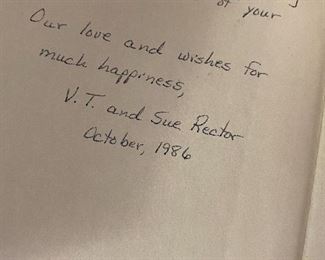 of your
Our love and wishes for
much happiness,
V. T. and Sue Rector
October, 1986